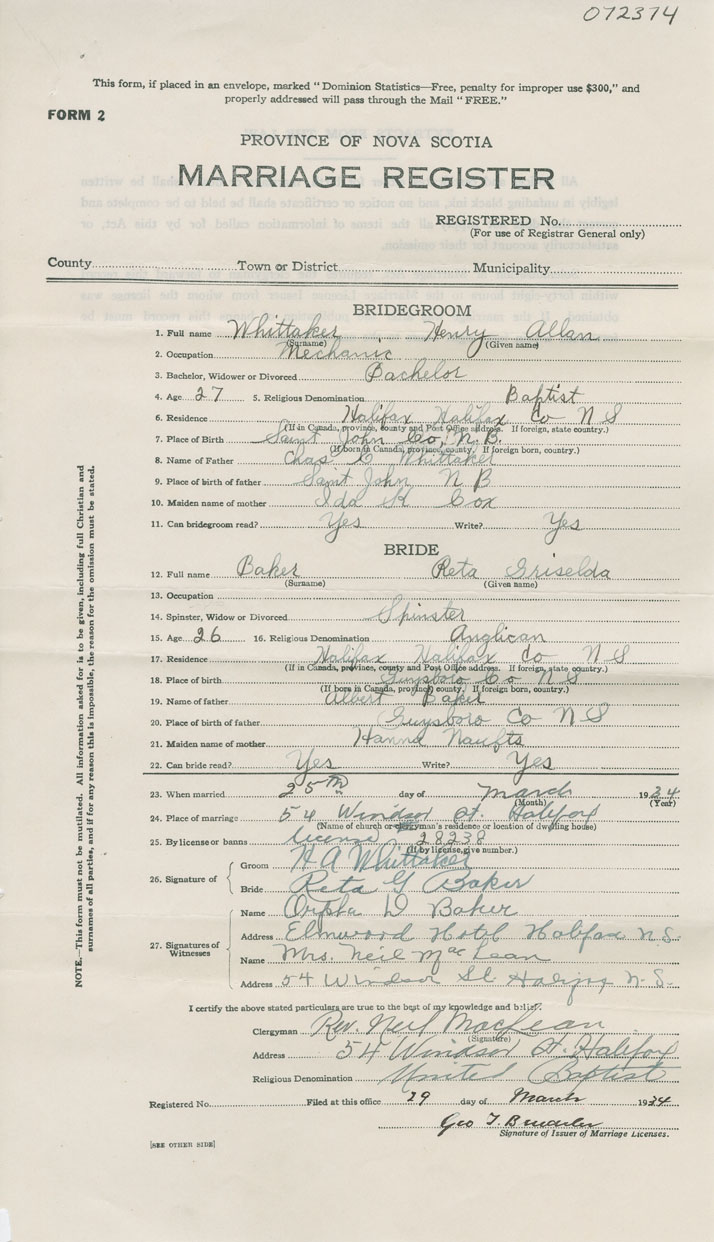 072374
This form, if placed in an envelope, marked "Dominion Statistics—Free, penalty for improper use $300," and
properly addressed will pass through the Mail "FREE."
FORM 2
PROVINCE OF NOVA SCOTIA
MARRIAGE REGISTER
REGISTERED No.
(For use of Registrar General only)
County Town or District Municipality
BRIDEGROOM
1. Full name Whittaker Henry Allan
(Surname) (Given name)
2. Occupation Mechanic
3. Bachelor, Widower or Divorced Bachelor
4. Age 27 5. Religious Denomination Baptist
6. Residence Halifax Halifax Co N S
(If in Canada, province, county and Post Office address. If foreign, state country.)
7. Place of Birth Saint John Co, N. B.
(If born in Canada, province, county. If foreign born, country.)
8. Name of Father Chas Whittaker
9. Place of birth of father Saint John N B
10. Maiden name of mother Ida K Cox
11. Can bridegroom read? Yes Write? Yes
BRIDE
12. Full name Baker Reta Griselda
(Surname) (Given name)
13. Occupation
14. Spinster, Widow or Divorced Spinster
15. Age 26 16. Religious Denomination Anglican
17. Residence Halifax Halifax Co N S
(If in Canada, province, county and Post Office address. If foreign, state country.)
18. Place of birth Guysboro Co N S
(If born in Canada, province, county. If foreign born, country.)
19. Name of father Albert Baker
20. Place of birth of father Guysboro Co N S
21. Maiden name of mother Hanna Naufts
22. Can bride read? Yes Write? Yes
23. When married 25th day of March 1934
(Month) (Year)
24. Place of marriage 54 Windsor St. Halifax
(Name of church or clergyman's residence or location of dwelling house)
25. By license or banns license 28238
(If by license, give number.)
26. Signature of
Groom H A Whittaker
Bride Reta G Baker
27. Signatures of Witnesses
Name Orpha D Baker
Address Elmwood Hotel Halifax N.S.
Name Mrs. Neil MacLean
Address 54 Windsor St. Halifax N.S.
I certify the above stated particulars are true to the best of my knowledge and belief.
Clergyman Rev. Neil MacLean
(Signature)
Address 54 Windsor St. Halifax
Religious Denomination United Baptist
Registered No. Filed at this office 29 day of March 1934
Geo T.
Signature of Issuer of Marriage Licenses.
[SEE OTHER SIDE]
NOTE.—This form must not be mutilated. All information asked for is to be given, including full Christian and
surnames of all parties, and if for any reason this is impossible, the reason for the omission must be stated.